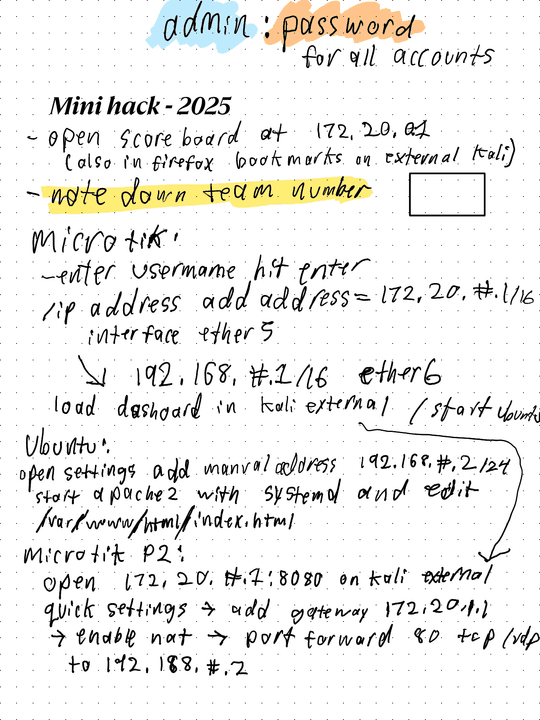 admin : password
for all accounts
Mini hack - 2025
- open score board at 172.20.0.1
(also in firefox bookmarks on external Kali)
- note down team number
Microtik:
- enter username hit enter
/ip address add address= 172.20.#.1/16
interface ether5
↘ 192.168.#.1/16 ether6
load dashoard in Kali external (start Ubuntu
Ubuntu:
open settings add manual address 192.168.#.2/24
start apache2 with systemd and edit
/var/www/html/index.html
Microtik P2:
open 172.20.#.1:8080 on Kali external
quick settings → add gateway 172.20.1.1
→ enable nat → port forward 80 tcp/udp
to 192.188.#.2